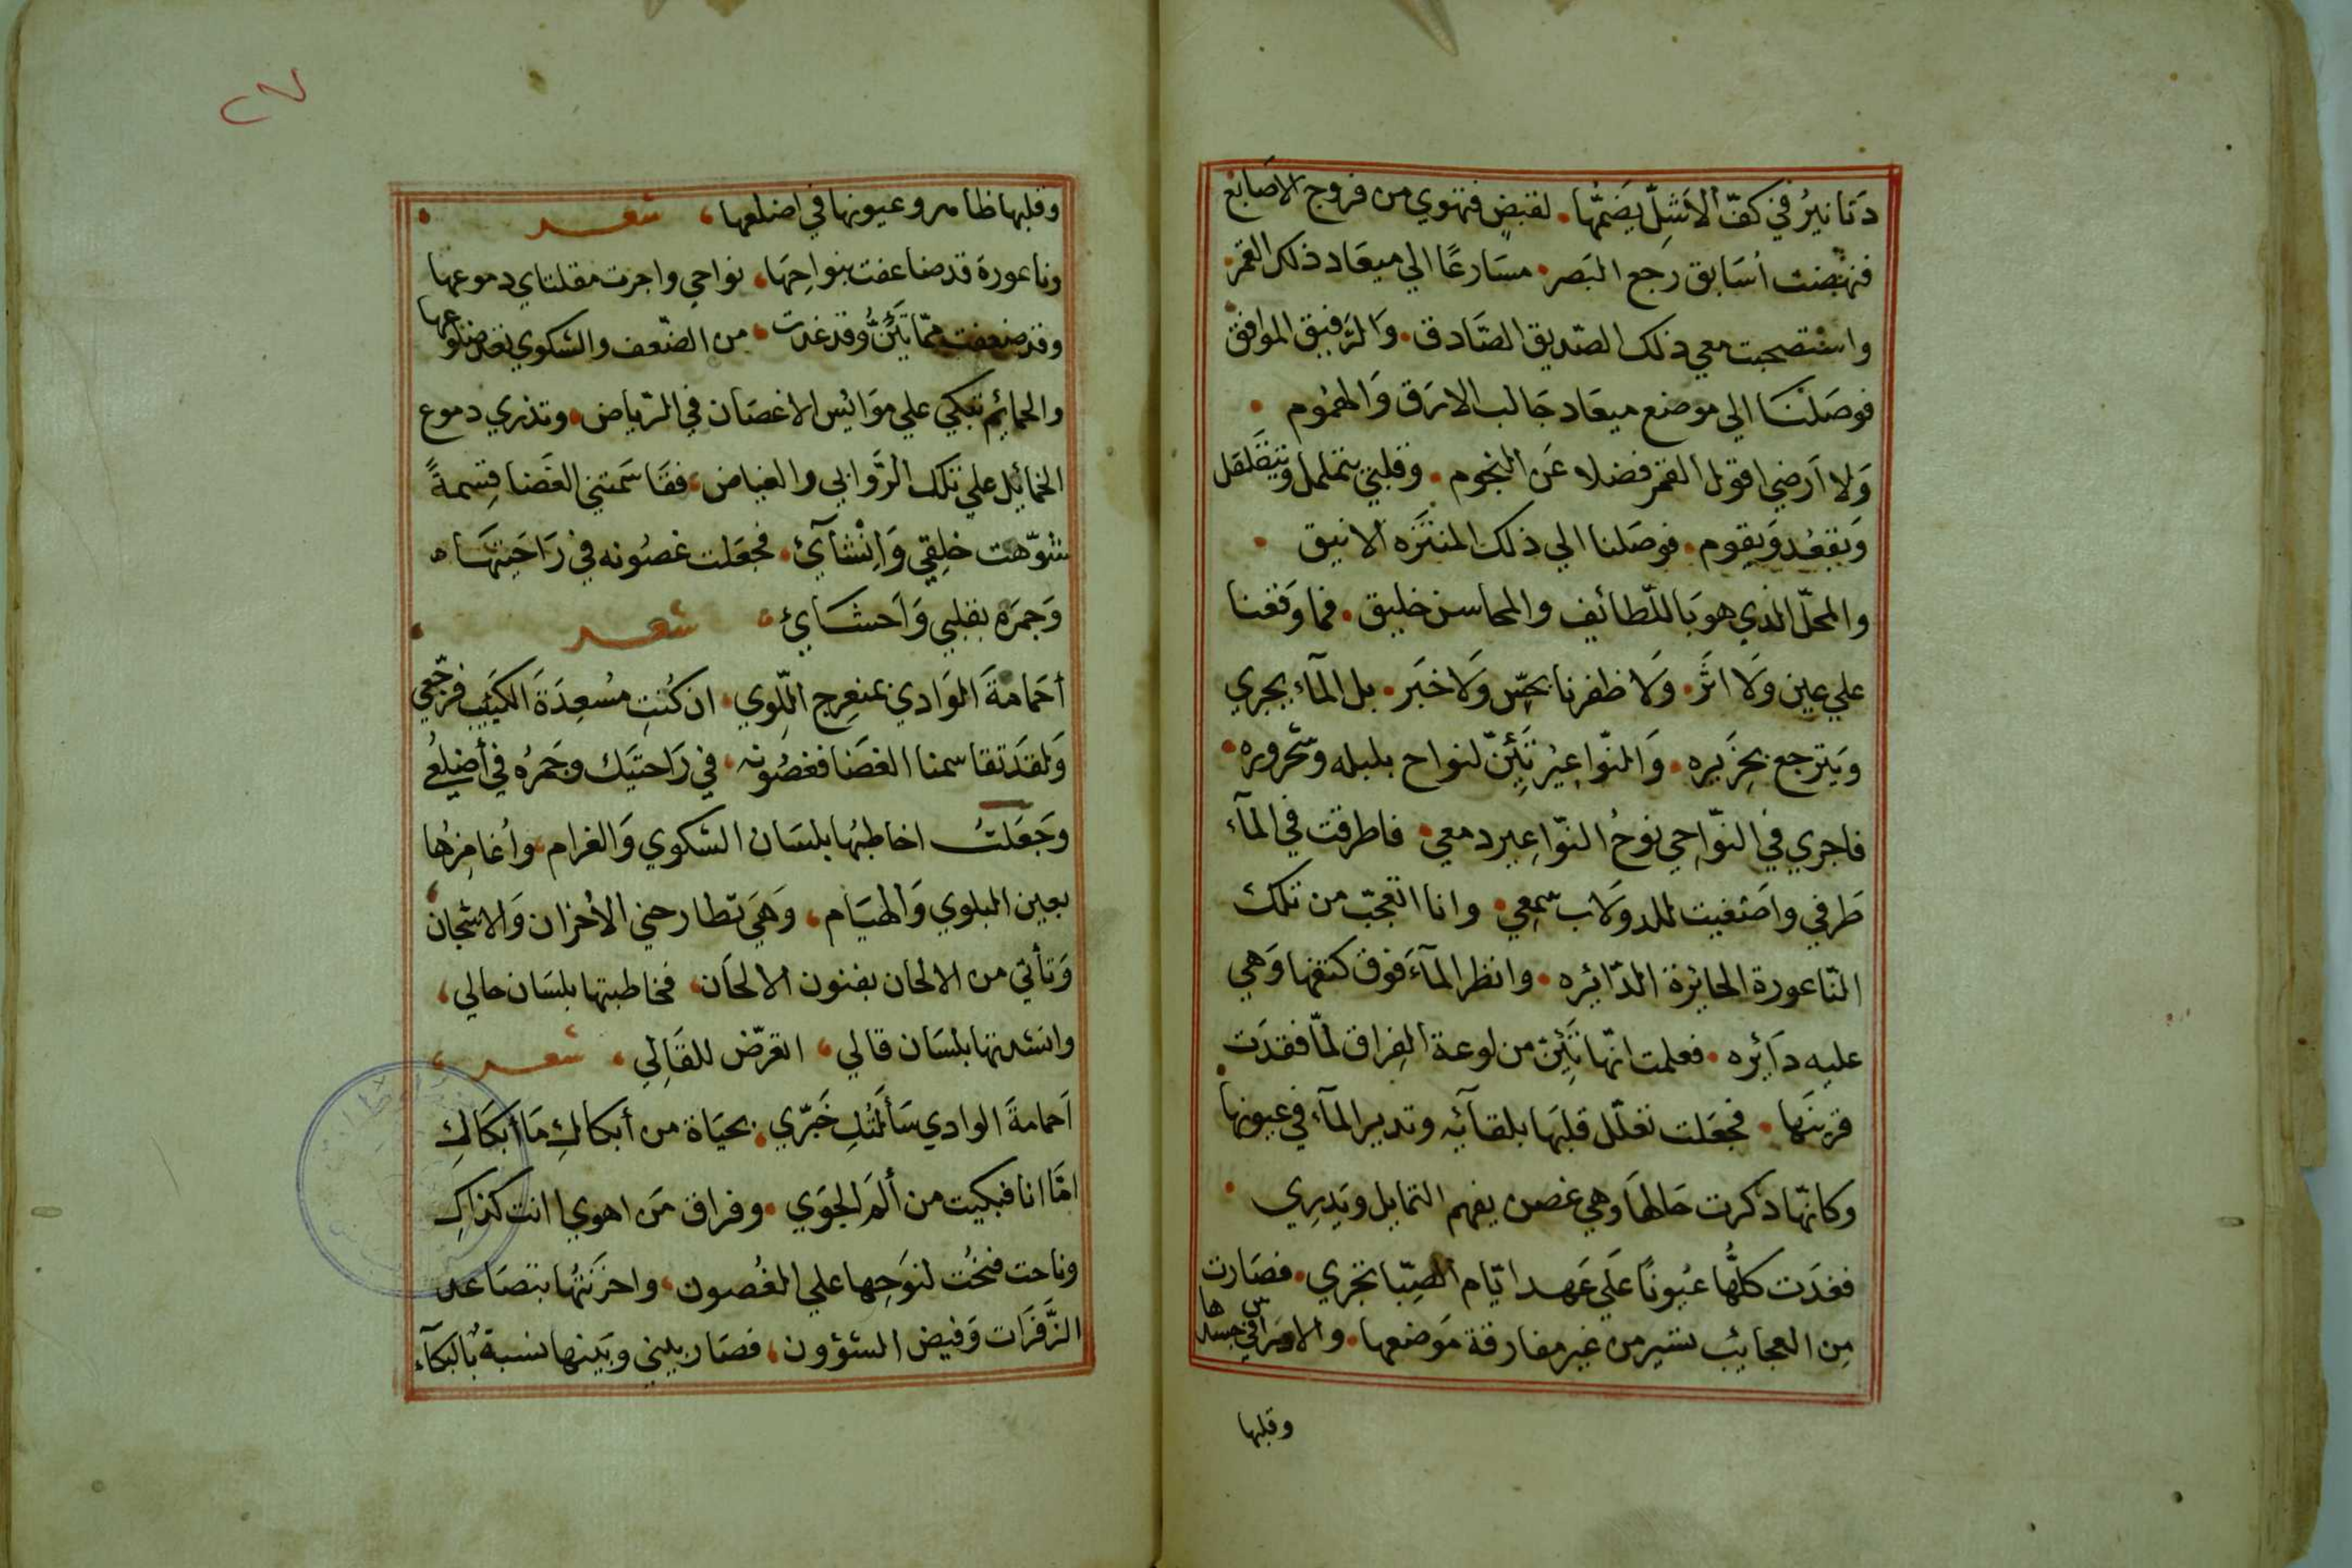 دَنَانيرُ في كفّ الأشِلّ يضَمُّها. لقبضٍ فتهوي من فروج الاصَابع
فنهضت اُسَابق رجع البَصر. مسَارعًا الي ميعَاد ذلك القمر.
واستصحبت معي ذلك الصّديق الصّادق. وَالرّفيق الموافق
فوصَلنَا الي موضع ميعَاد جَالب الارَق وَالهمُوم .
وَلا اَرضي اقول القمر فضلا عَن النجوم. وقلبي يتململ ويتقلقل
وَيقعُد وَيقوم. فوصَلنا الي ذلك المنتزَه الانيق .
والمحلّ الذي هوَ باللّطائف والمحاسن خليق. فما وَقعنا
علي عين وَلا اثَر. وَلا ظفرنا بحسّ وَلا خبَر. بل المآء يجري
وَيترجع بخَريره. وَالنّواعيرُ تَئِنّ لنواح بلبله وشحروره.
فاجري في النّواحي نوحُ النّواعير دمعي. فاطرقت في المآء
طَرفي واصَغيت للدولَاب سَمعي. وانا اتعجّب من تلك
النّاعورة الحائرة الدّائره. وانظر المآءَ فوق كتفها وَهي
عليه دَائره. فعلمت انّها تَئِنّ من لوعة الفِراق لمّا فقدَت
قرينَها. فجعَلت تعَلّل قلبَها بلقآئه وتدير المآء في عيونها
وكانّها ذكرت حَالهَا وهي غصن يفهم التمايل ويَدِري .
فغدَت كلُّها عيُونًا عَلَي عَهد ايّام الصِّبَا تجري. فصَارت
مِن العجايب تسير من غير مفارقة مَوضعها. والاوس راقي جسدها
وقلبها
٢٧
وقلبها ظاهر وعيونها في اضلعها، شعر
وناعورة قد ضاعفت بنواحِهَا، نواحي واجرت مقلتاي دموعها
وقد ضعفت ممّا تَئِنُّ وقد غدت، من الضّعف والشكوي تعَد ضلوعها
والحمائم تبكي علي موَائيس الاغصَان في الرّياض. وتذري دموع
الخمائِل علي تلك الرَّوَابي والغياض، فقَاسَمتني الغَضا قِسمةً
شوّهت خلِقي وَاِنْشآئ. فجعَلت غصُونه في رَاحَتِهَا
وَجمَره بقلبي وَاَحشَائ، شعر
أحَمامَةَ الوَادي بمنعِرج اللّوي، ان كُنتِ مُسعِدَةَ الكئيَبِ فرجّعي
وَلقدَ تقاسمنا الغَضَا فغصُونه، في رَاحتَيك وجَمرُه في أضلعُي
وجَعَلتُ اخاطبُها بلسَان الشكوي وَالغرام، واُغامِزُها
بعين البلوي وَالهيَام، وَهَي تطارحني الأخزان وَالاشجان
وَتأتي من الالحان بفنون الالحَان، فخاطبتها بلسَان حالي،
وانشدتها بلسَان قالي، اتعرّض للقَالِي، شعر
اَحمامةَ الوادي سَألتُكِ خَبّري. بحيَاة من أبكاكِ مَا أبكَاكِ
امَّا انا فبكيت من ألمَ الجوَي. وفراق مَن اهوي ا انت كذاكِ
وناحت فنحُت لنوَحِها علي الغُصون، واحزَنتُها بتصَاعد
الزَّفرَات وَفيض الشؤون، فصَار بيني وبَينها نسبة بُالبكآء